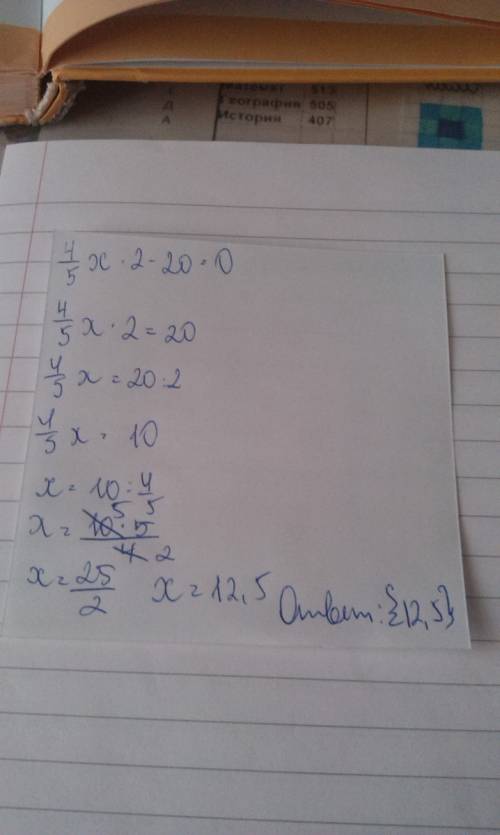 География 505
Д
История 407
А
4/5 x · 2 - 20 = 0
4/5 x · 2 = 20
4/5 x = 20 : 2
4/5 x = 10
x = 10 : 4/5
x = 10 · 5 / 4 5 2
x = 25/2 x = 12,5 Ответ: {12,5}